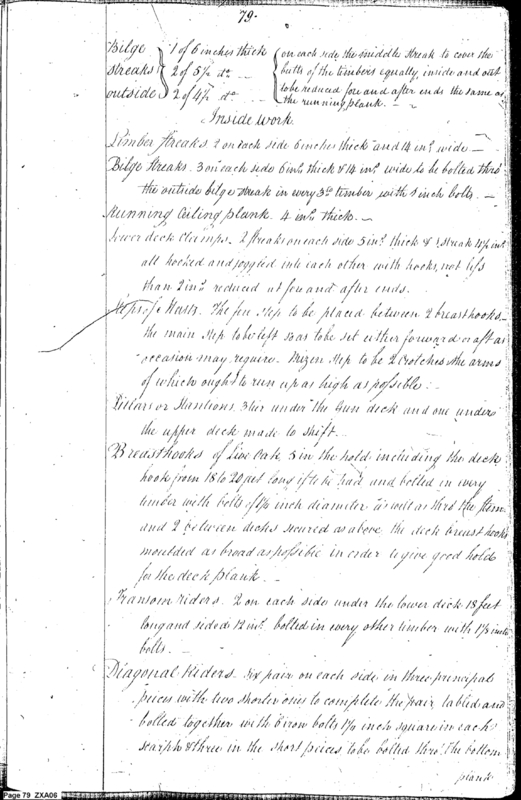 79.
Bilge } 1 of 6 inches thick { on each side the middle streak to cover the
streaks } 2 of 5½ do — { butts of the timbers equally, inside and out
outside } 2 of 4½ do — { to be reduced fore and after ends the same as
the running plank. —
Inside work
Limber Streaks 2 on each side 6 inches thick and 14 ins wide —
Bilge Streaks. 3 on each side 6 ins thick & 14 ins wide to be bolted thro'
the outside bilge streak in every 3d timber with 1 inch bolts. —
Running Ceiling plank. 4 ins thick. —
Lower deck Clamps. 2 streaks on each side 5 ins thick & 1 streak 4½ ins
all hooked and joggled into each other with hooks, not less
than 2 ins reduced at fore and after ends.
Steps of Masts. The fore Step to be placed between 2 breasthooks —
the main Step to be left so as to be set either forward or aft as
occasion may require. Mizen Step to be 2 Crotches the arms
of which ought to run up as high as possible. —
Pillars or Stantions. 3 tier under the Gun deck and one under
the upper deck made to shift. —
Breasthooks of Live Oak 5 in the hold including the deck
hook from 18 to 20 feet long if to be had and bolted in every
timber with bolts of 1⅛ inch diameter as well as thro' the Stem
and 2 between decks secured as above the deck breast hooks
moulded as broad as possible in order to give good hold
for the deck plank. —
Transom riders. 2 on each side under the lower deck 18 feet
long and sided 12 ins. bolted in every other timber with 1⅛ inch
bolts. —
Diagonal Riders. Six pair on each side in three principal
pieces with two shorter ones to complete the pair tabled and
bolted together with 6 iron bolts 1⅛ inch square in each
scarph & three in the short pieces to be bolted thro' the bottom
plank
Page 79 ZXA06